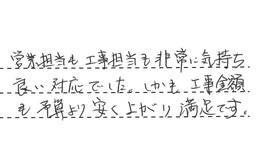 営業担当も工事担当も非常に気持ち
良い対応でした。しかも工事金額
も予算より安く上がり満足です。